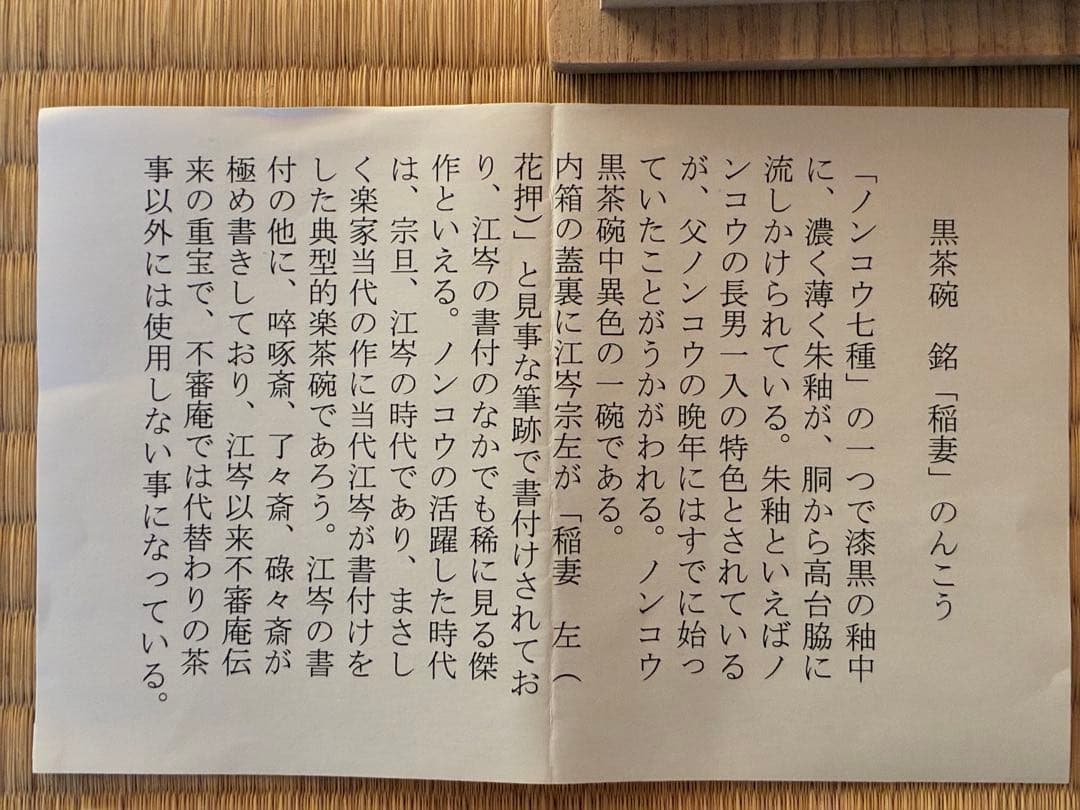 黒茶碗　銘「稲妻」のんこう
「ノンコウ七種」の一つで漆黒の釉中
に、濃く薄く朱釉が、胴から高台脇に
流しかけられている。朱釉といえばノ
ンコウの長男一入の特色とされている
が、父ノンコウの晩年にはすでに始っ
ていたことがうかがわれる。ノンコウ
黒茶碗中異色の一碗である。
内箱の蓋裏に江岑宗左が「稲妻　左（
花押）」と見事な筆跡で書付けされてお
り、江岑の書付のなかでも稀に見る傑
作といえる。ノンコウの活躍した時代
は、宗旦、江岑の時代であり、まさし
く楽家当代の作に当代江岑が書付けを
した典型的楽茶碗であろう。江岑の書
付の他に、啐啄斎、了々斎、碌々斎が
極め書きしており、江岑以来不審庵伝
来の重宝で、不審庵では代替わりの茶
事以外には使用しない事になっている。